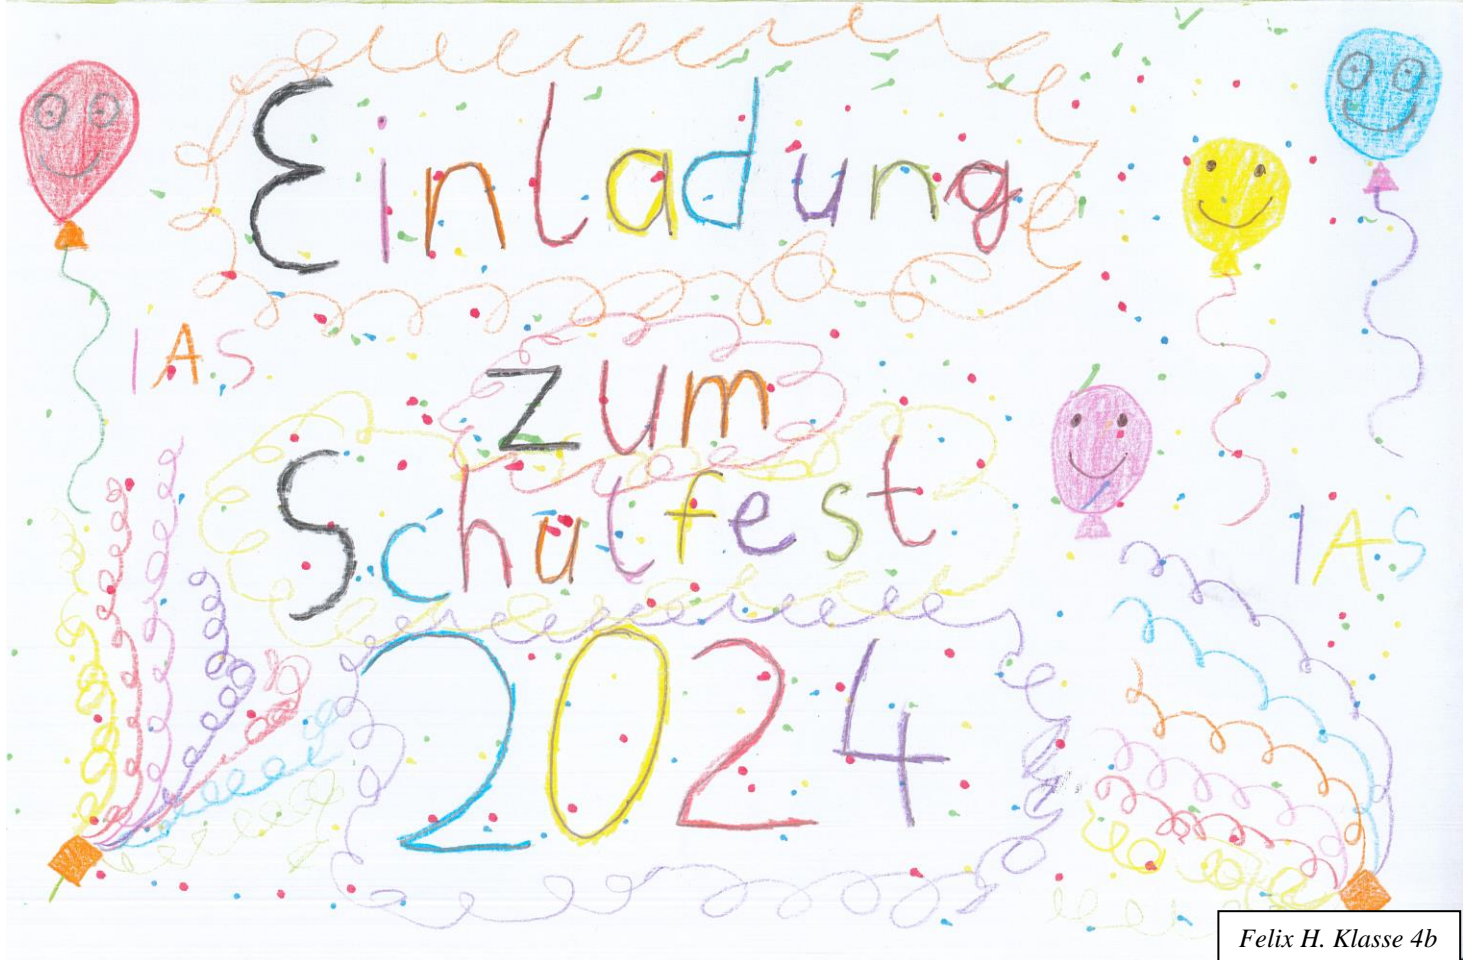 Einladung
IAS
zum
Schulfest
IAS
2024
Felix H. Klasse 4b